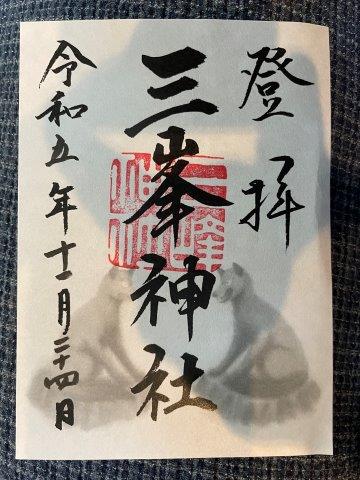 登拝
三峯神社
令和五年十一月二十四日